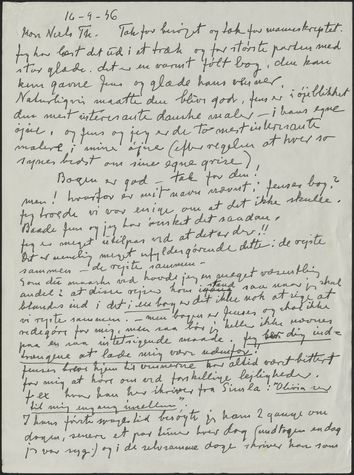 16-9-46
Kære Niels Th. Tak for besøget og tak for manuskriptet.
Jeg har læst det ud i et træk og for største parten med
stor glæde. det er en varmt følt bog, den kan
kun gavne Jens og glæde hans venner.
Naturligvis maatte den blive god, Jens er i øjeblikket
den mest interessante danske maler – i hans egne
øjne, og Jens og jeg er de to mest interessante
malere i mine øjne (efter regelen at hver so
synes bedst om sine egne grise)
Bogen er god – tak for den!
men! hvorfor er mit navn nævnt i Jenses bog?
Jeg troede vi var enige om at det ikke skulle.
Baade Jens og jeg har ønsket det saadan.
Jeg er meget utilpas ved at det er der!!
Det er nemlig meget udførligere dette: de rejste
sammen – de rejste sammen –
Som du maaske ved havde jeg en meget væsentlig
andel i at disse rejser kom istand saa naar jeg skal
blandes ind i det i en bog er det ikke nok at sige at
vi rejste sammen. – men bogen er Jenses og skal ikke
redegøre for mig, men saa bør jeg heller ikke nævnes
paa en saa intetsigende maade. Jeg ber dig ind-
trængende at lade mig være udenfor!
Jenses breve hjem til vennerne har altid været bittert
for mig at høre om ved forskellige lejligheder.
f.ex hvor han her skriver fra Simla: "Olivia ser
til mig engang imellem".
I hans første sygetid besøgte jeg ham 2 gange om
dagen, senere et par timer hver dag (undtagen en dag
jeg var syg) og i de selvsamme dage skriver han som